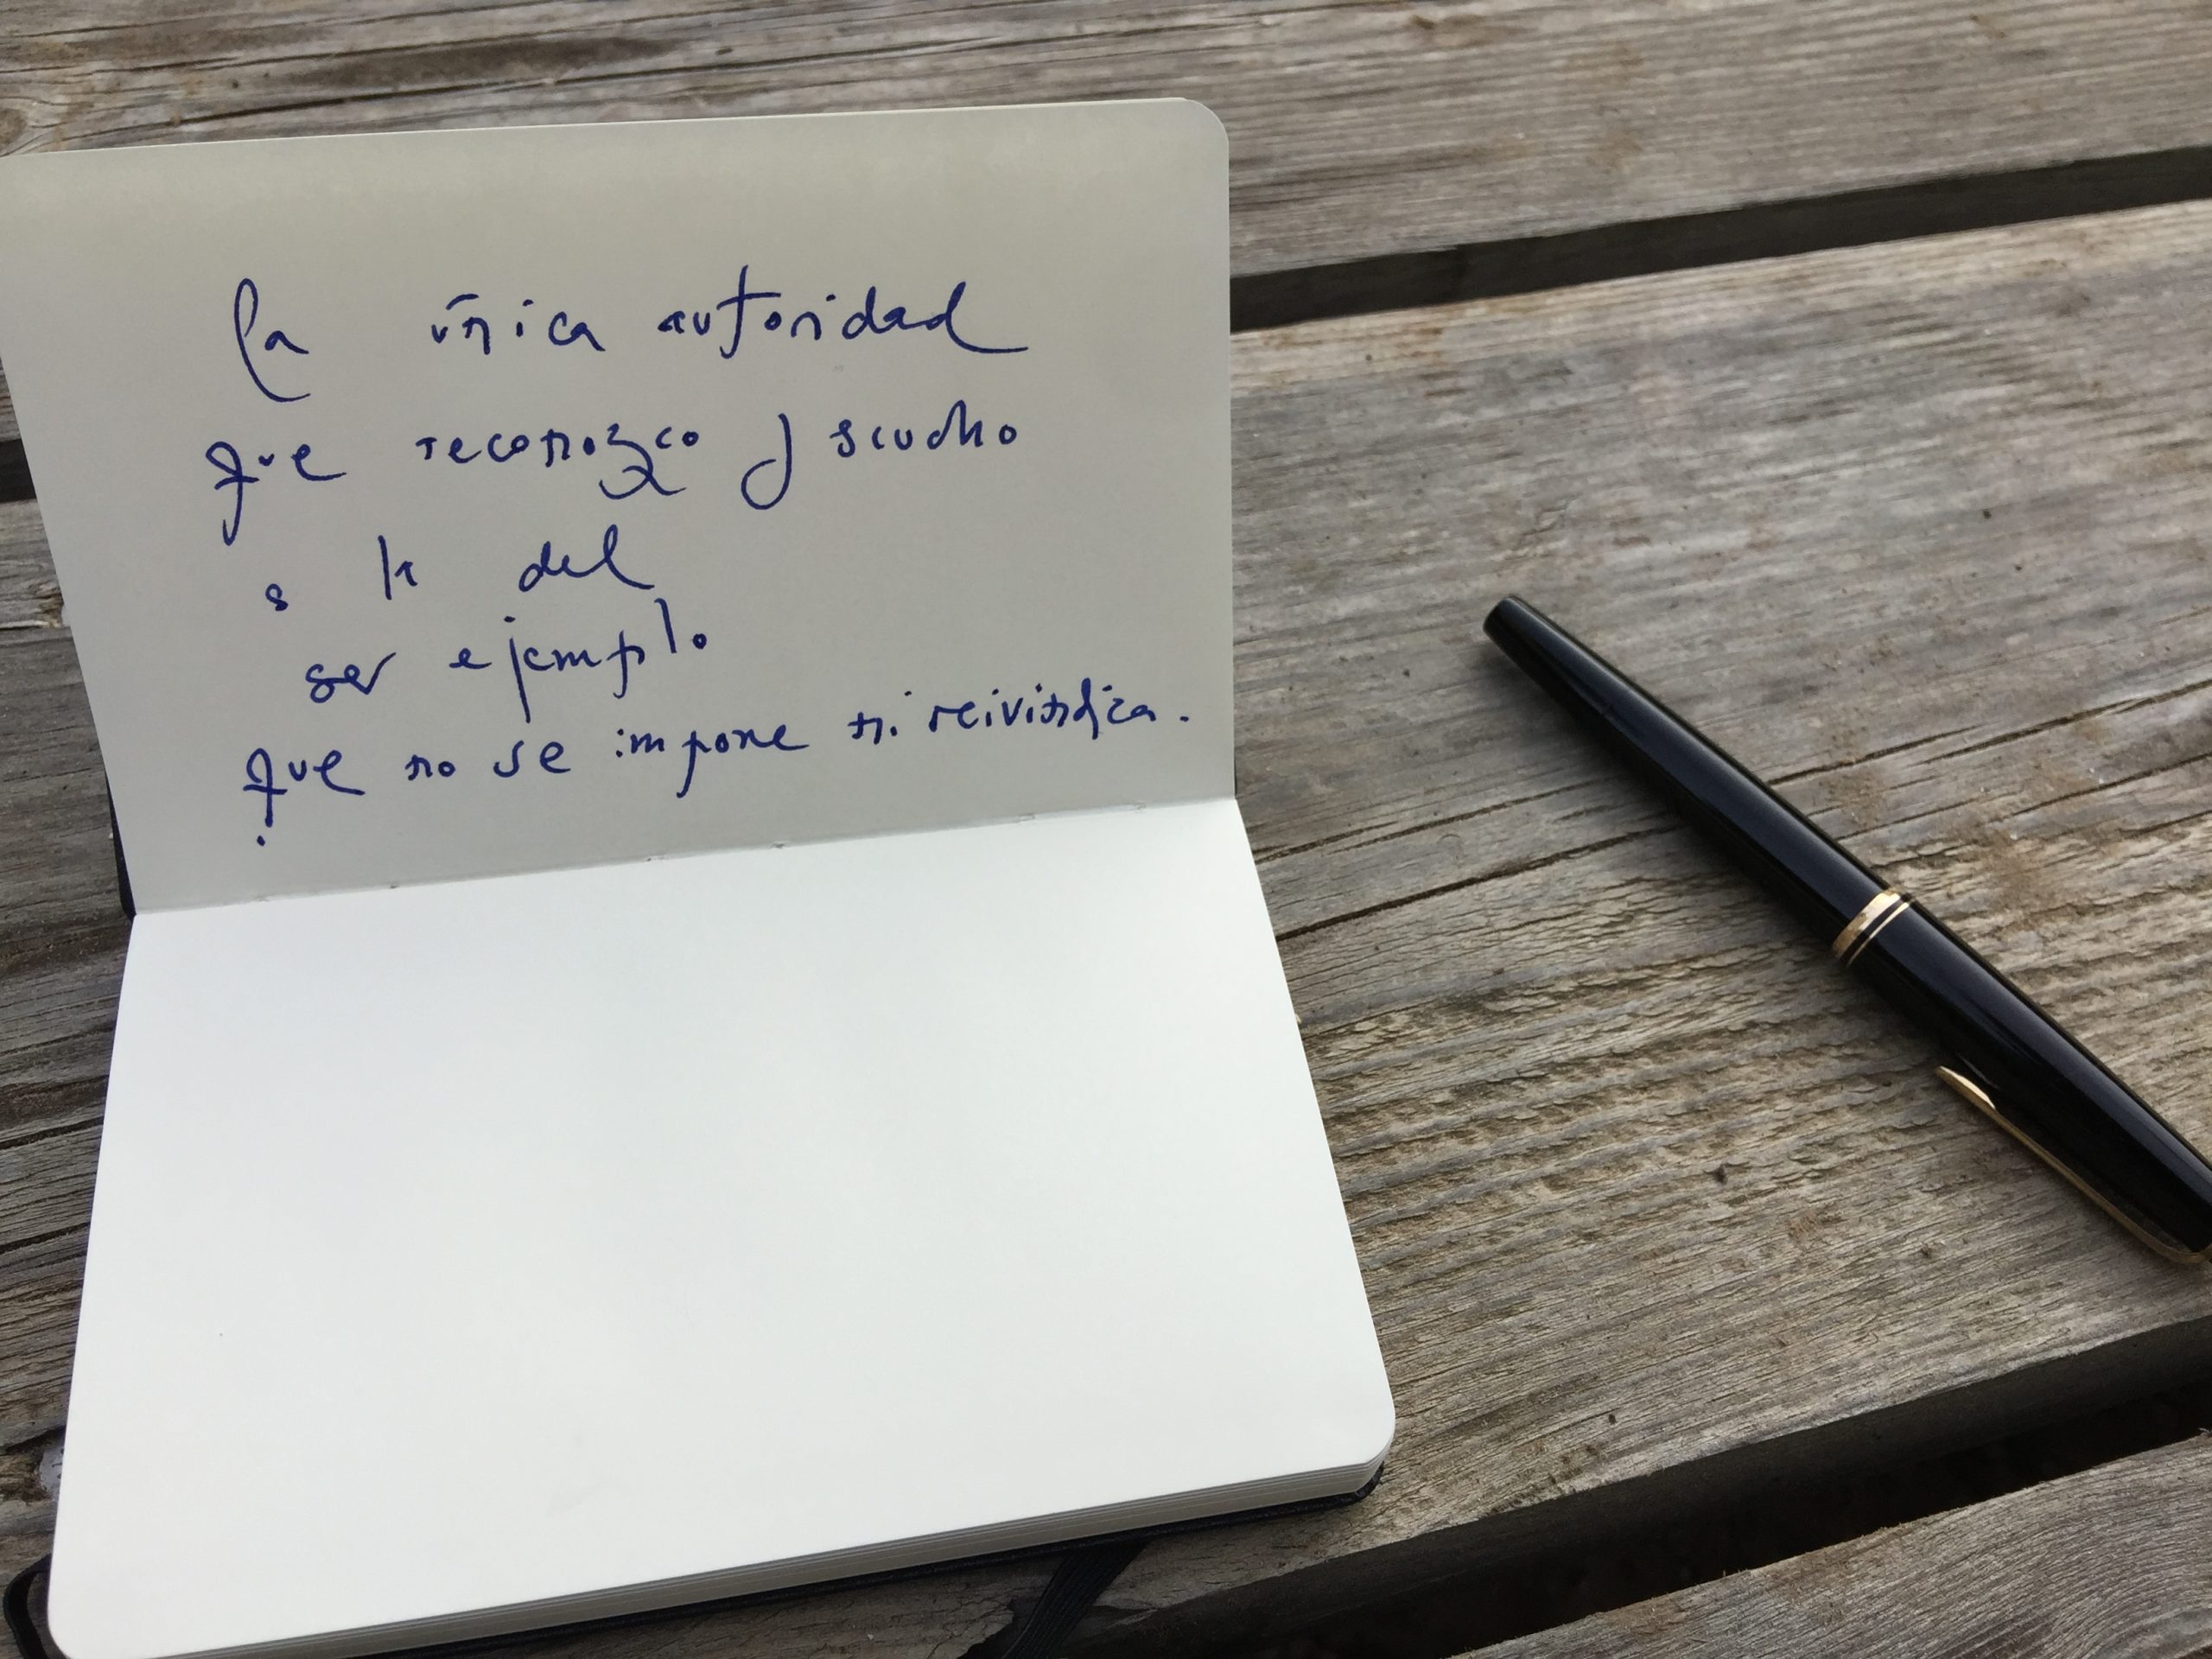 La única autoridad
que reconozco y escucho
es la del
ser ejemplo
que no se impone ni reivindica.